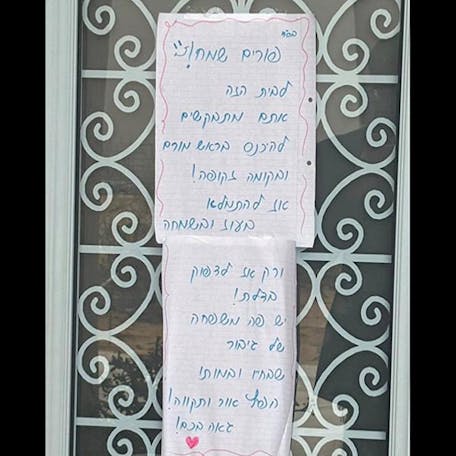 בס"ד
פורים שמח!
לבית הזה
אתם מתבקשים
להיכנס בראש מורם
ובקומה זקופה!
אז להתמלא
בעוז ובשמחה
ורק אז לדפוק
בדלת!
יש פה משפחה
של גיבור
שבחייו ובמותו
הפיץ אור ותקווה!
גאה בכם!